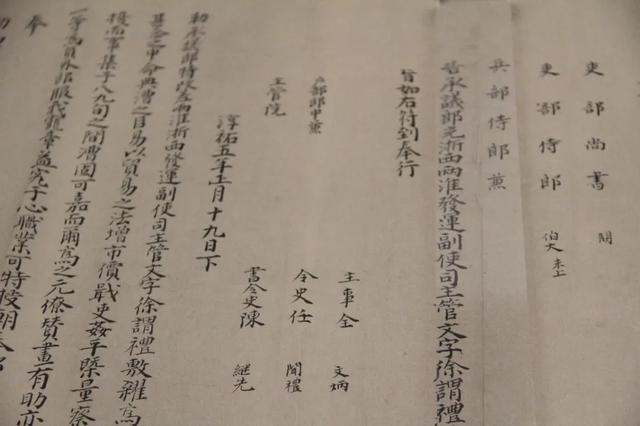 吏部尚書 闕
吏部侍郎 伯大 未上
兵部侍郎 兼
告承議郎充浙西兩淮發運副使司主管文字徐謂禮
主事仝 文炳
令史任 聞禮
書令史陳 繼先
旨如右符到奉行
戶部郎中兼
主管院
淳祐五年十二月十九日下
勑承議郎特改差兩淮浙西發運副使司主管文字徐謂禮敷雜為
甚命之申命與漕之目易以貿易之法增市價戢吏姦平槩量察
擾而事集于八九旬之間漕固可嘉而爾為之元僚贊畫有助亦
一等為員外郎服我雅章益究于心職業可特授朝奉
奉